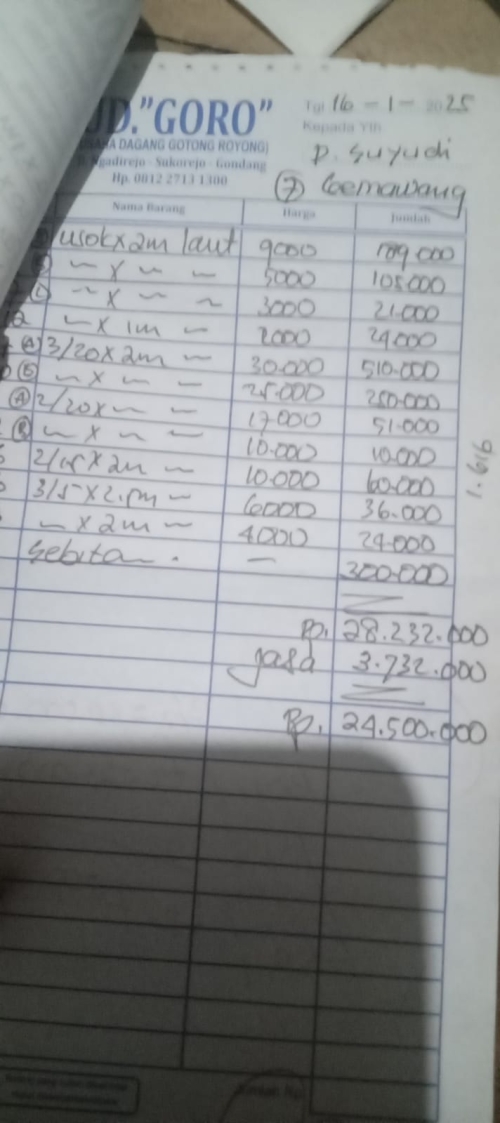 UD."GORO"
(USAHA DAGANG GOTONG ROYONG)
Ngadirejo - Sukorejo - Gondang
Hp. 0812 2713 1300
Tgl 16 - 1 - 2025
Kepada Yth
P. Suyudi
⑦
Nama Barang Harga Jumlah
usuk x 2m laut 9000
~ x ~ ~ 5000 105.000
~ x ~ ~ 3000 21.000
~ x 1m ~ 2000 24.000
Ⓐ 3/20 x 2m ~ 30.000 510.000
Ⓑ ~ x ~ ~ 25.000 250.000
Ⓐ 2/20 x ~ ~ 17.000 51.000
Ⓑ ~ x ~ ~ 10.000 10.000
2/15 x 2m ~ 10.000 60.000
3/15 x 2.5m ~ 6000 36.000
~ x 2m ~ 4000 24.000
sebitan. — 300.000
Rp. 28.232.000
jasa 3.732.000
Rp. 24.500.000
1.616